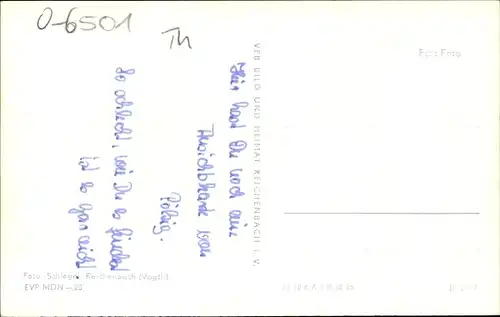 O-6501
Th
Hier hast Du noch eine
Ansichtskarte von
Pölzig.
So schlecht, wie Du es findest
ist es gar nicht
VEB BILD UND HEIMAT REICHENBACH I. V.
Echt Foto
Foto: Schlegel, Reichenbach (Vogtl.)
EVP MDN —,20